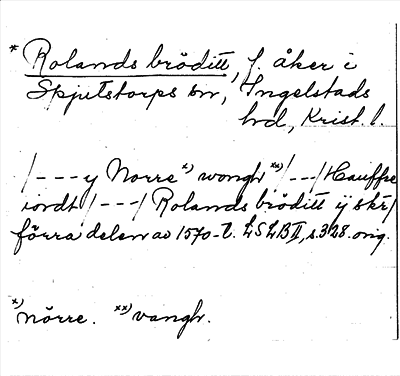 * Rolands bröditt, f. åker i
Skjutstorps sn, Ingelstads
hd, Krist. l.
/---y Norre *) wongh **) /---/ Hauffue
iordt /---/ Rolands bröditt ÿ skr/
förra delen av 1570-t. LSLB II, s. 328. orig.
*) nörre. **) vangh.